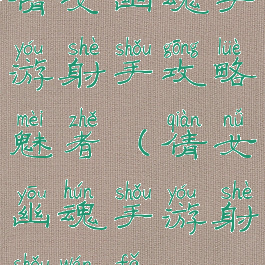 倩女幽魂手
yóu shè shǒu gōng lüè
游射手攻略
mèi zhě qiàn nǚ
魅者(倩女
yōu hún shǒu yóu shè
幽魂手游射
shǒu wán fǎ